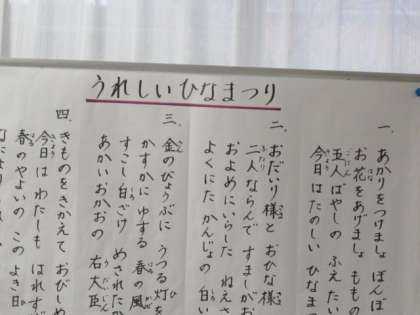 うれしいひなまつり
一、あかりをつけましょ ぼんぼ
お花をあげましょ ももの
五人ばやしの ふえ たい
今日はたのしい ひなま
二、おだいり様と おひな様
二人ならんで すましがお
およめにいらした ねえさ
よくにた かんじょの 白い
三、金のびょうぶに うつる灯を
かすかにゆする 春の風
すこし白ざけ めされたか
あかいおかおの 右大臣
四、きものをきかえて おびしめ
今日はわたしも はれすが
春のやよいの このよき日